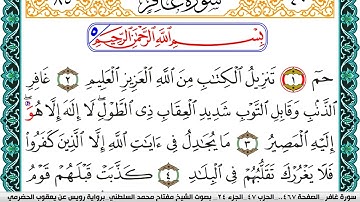 سورة غافر
بِسْمِ اللَّهِ الرَّحْمَٰنِ الرَّحِيمِ ٥
حمٓ ١ تَنزِيلُ الْكِتَٰبِ مِنَ اللَّهِ الْعَزِيزِ الْعَلِيمِ ٢ غَافِرِ
الذَّنۢبِ وَقَابِلِ التَّوْبِ شَدِيدِ الْعِقَابِ ذِي الطَّوْلِ لَا إِلَٰهَ إِلَّا هُوَ
إِلَيْهِ الْمَصِيرُ ٣ مَا يُجَٰدِلُ فِي ءَايَٰتِ اللَّهِ إِلَّا الَّذِينَ كَفَرُوا
فَلَا يَغْرُرْكَ تَقَلُّبُهُمْ فِي الْبِلَٰدِ ٤ كَذَّبَتْ قَبْلَهُمْ قَوْمُ
سورة غافر - الصفحة ٤٦٧ - الحزب ٤٧ الجزء ٢٤ - بصوت الشيخ مفتاح محمد السلطني - برواية رويس عن يعقوب الحضرمي